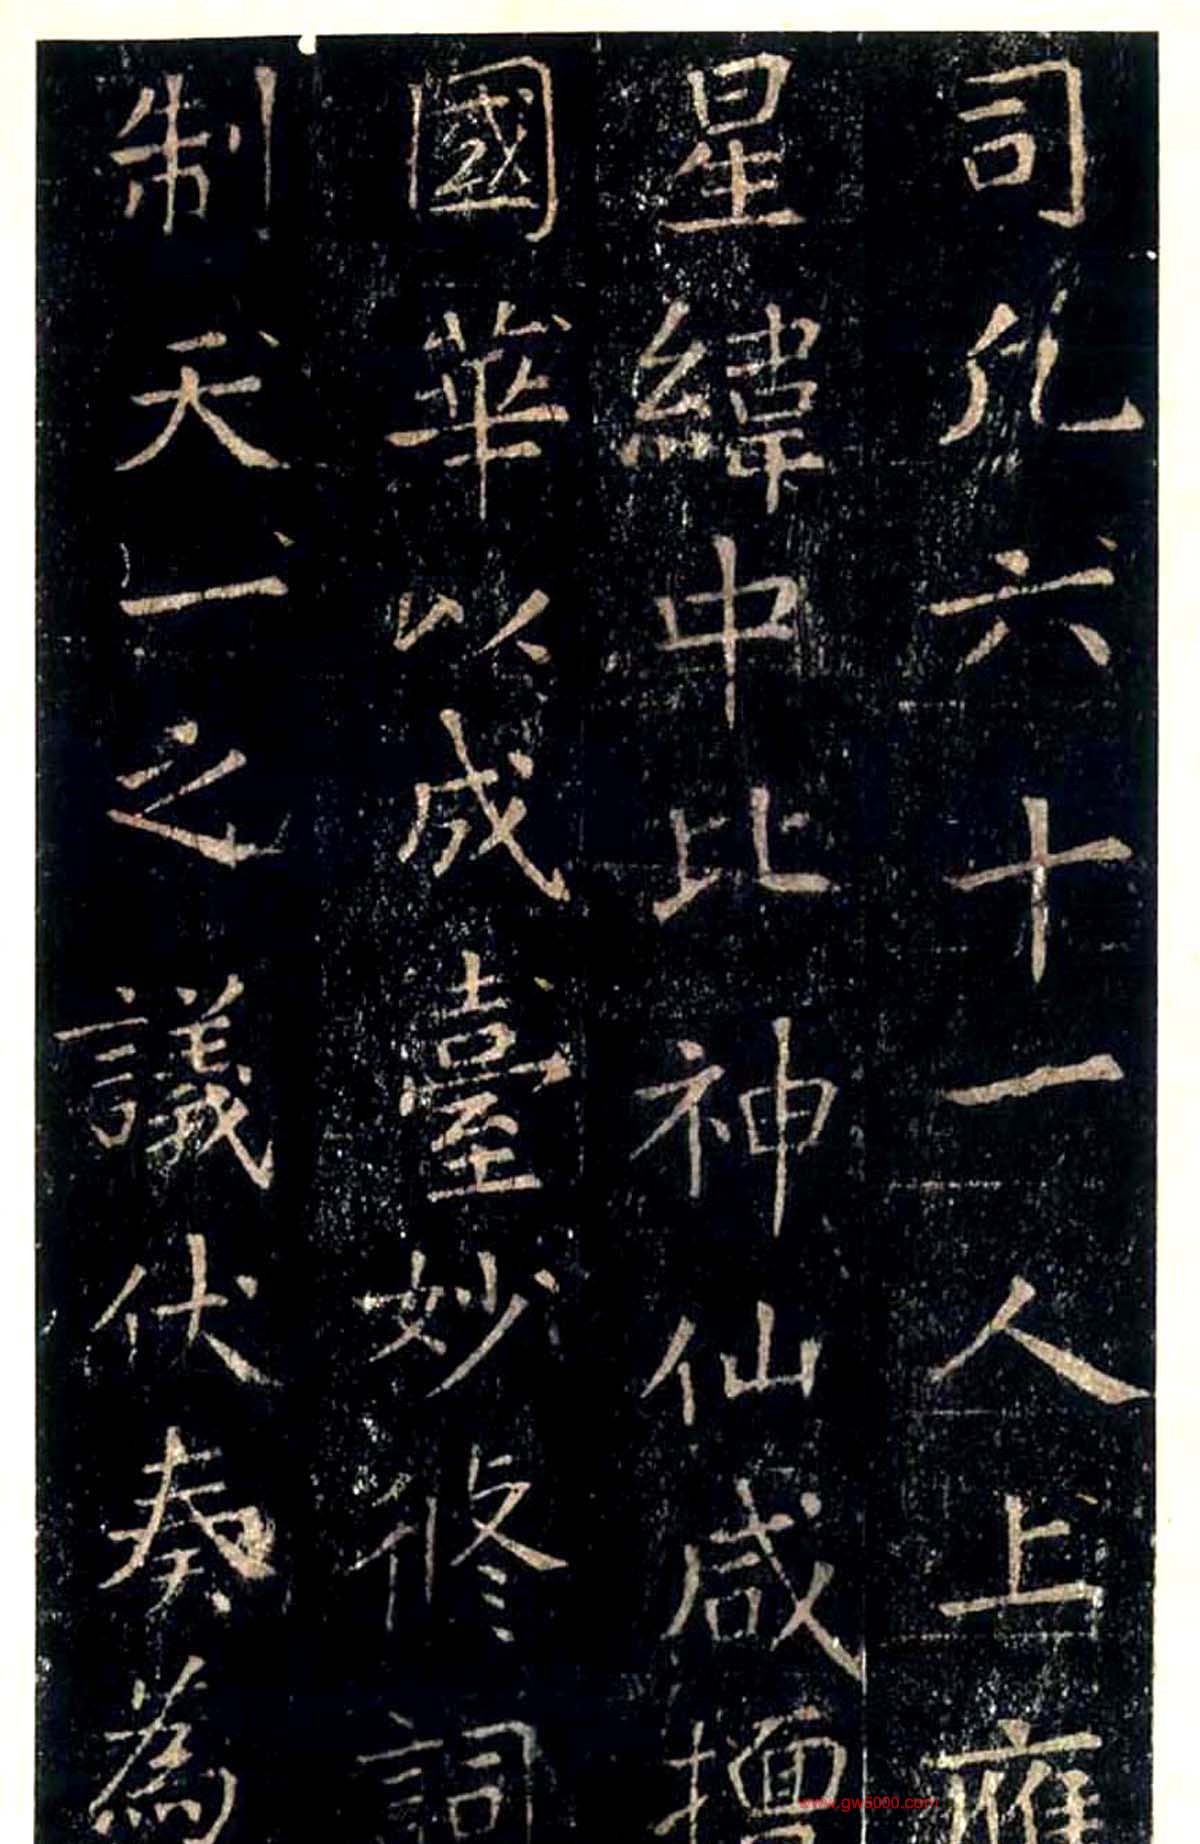 司凡六十一人上應
星緯中比神仙咸擅
國華以成臺妙修詞
制天一之議伏奏為
www.gw5000.com